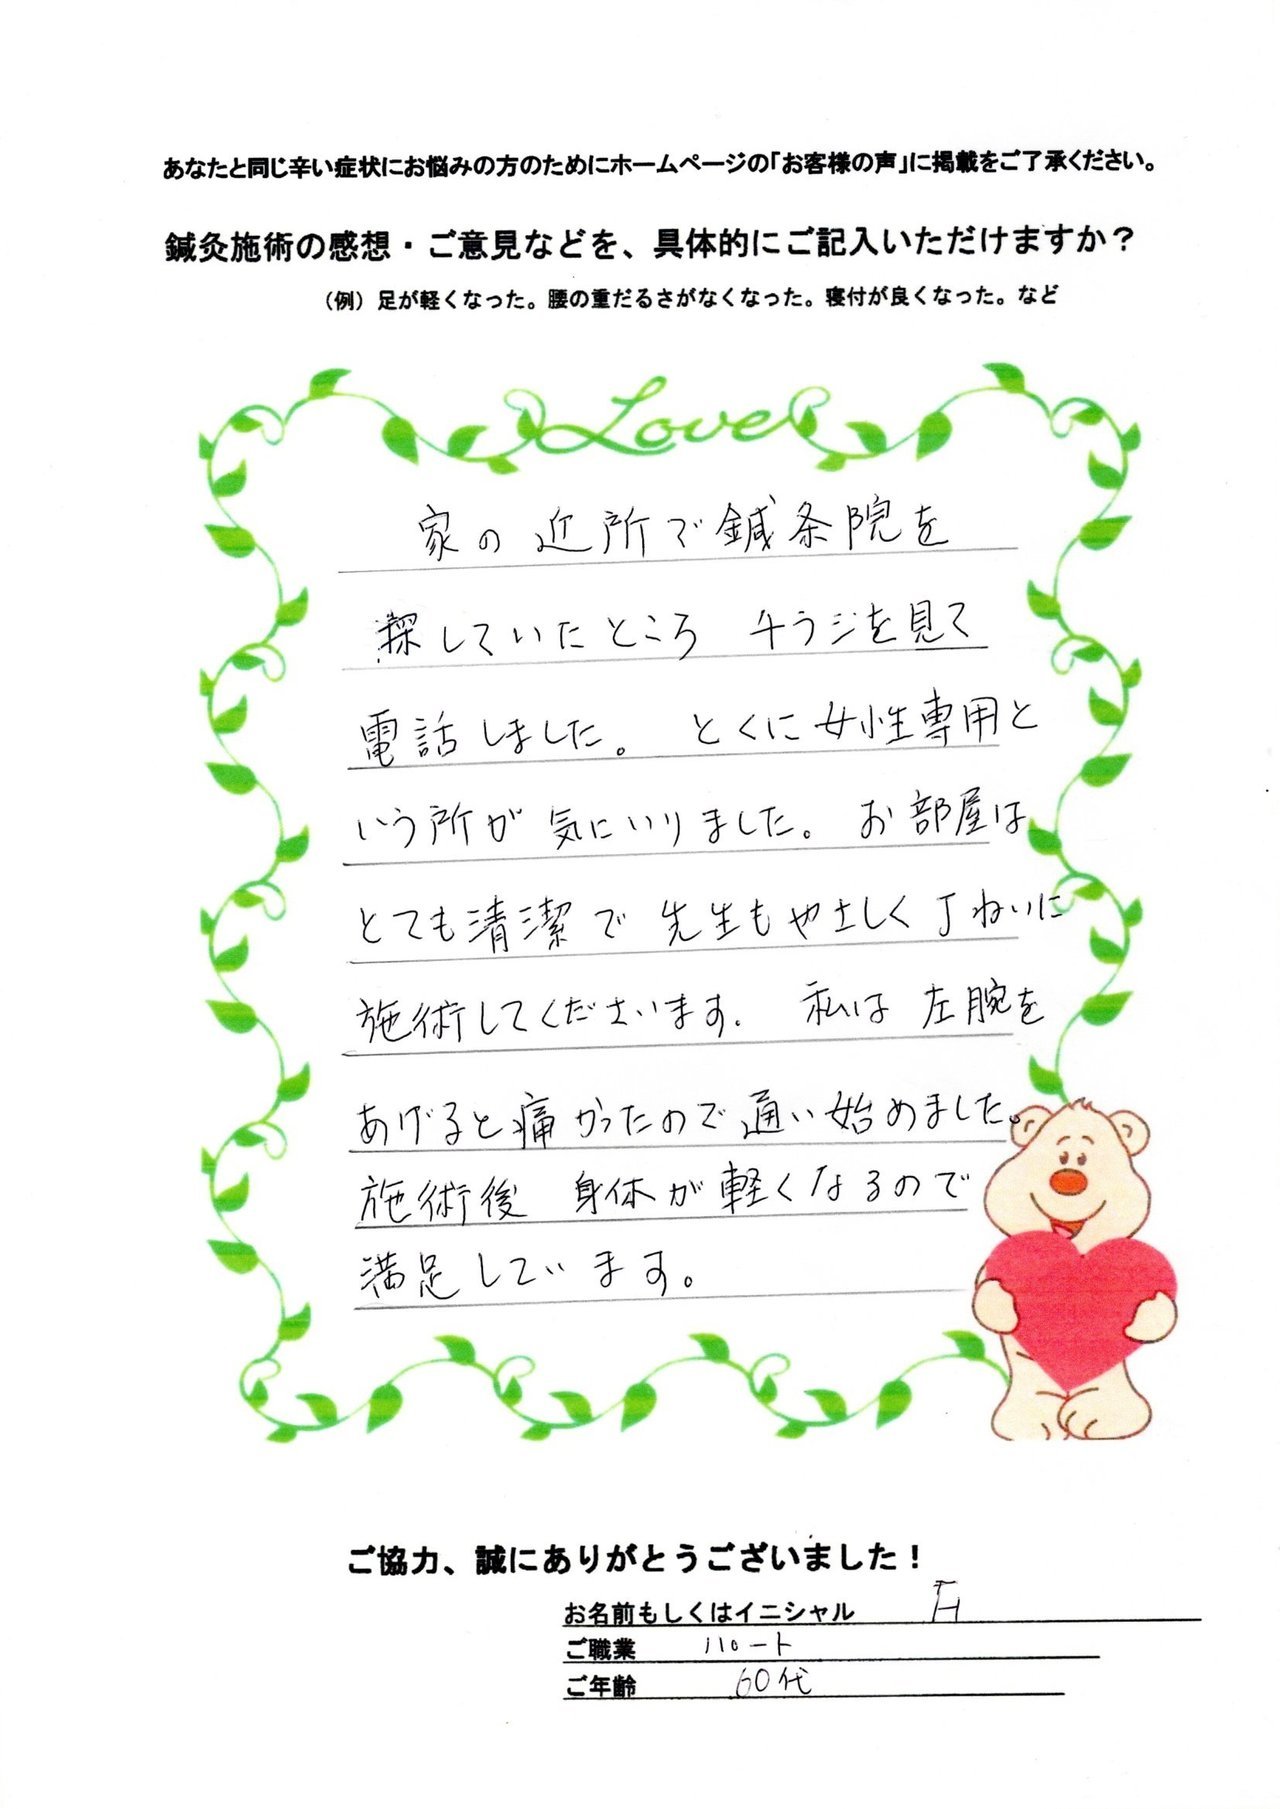 あなたと同じ辛い症状にお悩みの方のためにホームページの「お客様の声」に掲載をご了承ください。
鍼灸施術の感想・ご意見などを、具体的にご記入いただけますか？
（例）足が軽くなった。腰の重だるさがなくなった。寝付が良くなった。など
Love
家の近所で鍼条院を
探していたところ チラシを見て
電話しました。 とくに女性専用と
いう所が気にいりました。お部屋は
とても清潔で 先生もやさしく丁ねいに
施術してくださいます。 私は左腕を
あげると痛かったので通い始めました。
施術後 身体が軽くなるので
満足しています。
ご協力、誠にありがとうございました！
お名前もしくはイニシャル
ご職業 パート
ご年齢 60代